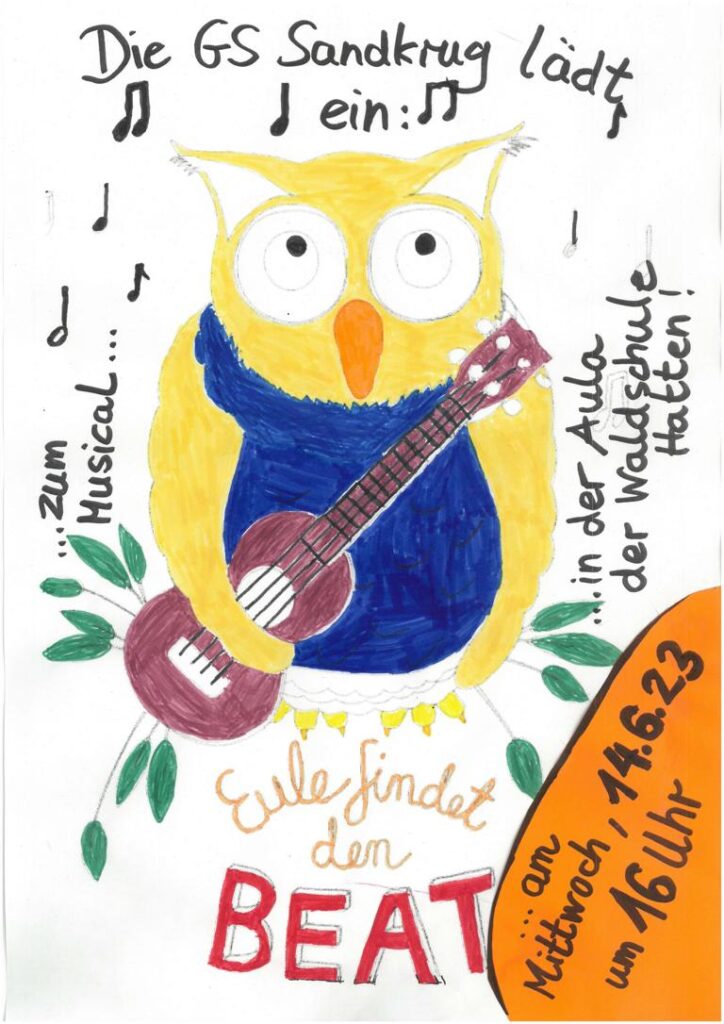 Die GS Sandkrug lädt
ein:
....zum
Musical....
...in der Aula
der Waldschule
Hatten!
Eule findet
den
BEAT
...am
Mittwoch, 14.6.23
um 16 Uhr